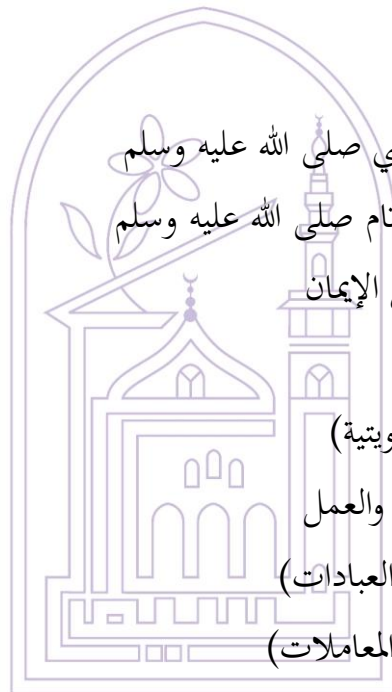 ي صلى الله عليه وسلم
نام صلى الله عليه وسلم
الإيمان
ويتية)
والعمل
العبادات)
المعاملات)